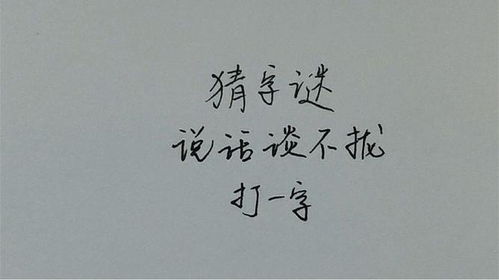 猜字谜
说话谈不拢
打一字